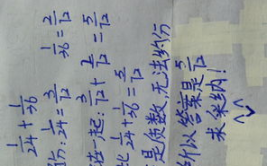 1/24 + 1/36
分: 1/24 = 3/72 1/36 = 2/72
在一起: 3/72 + 2/72 = 5/72
1/24 + 1/36 = 5/72
是质数,无法约分
所以答案是 5/72
求采纳!